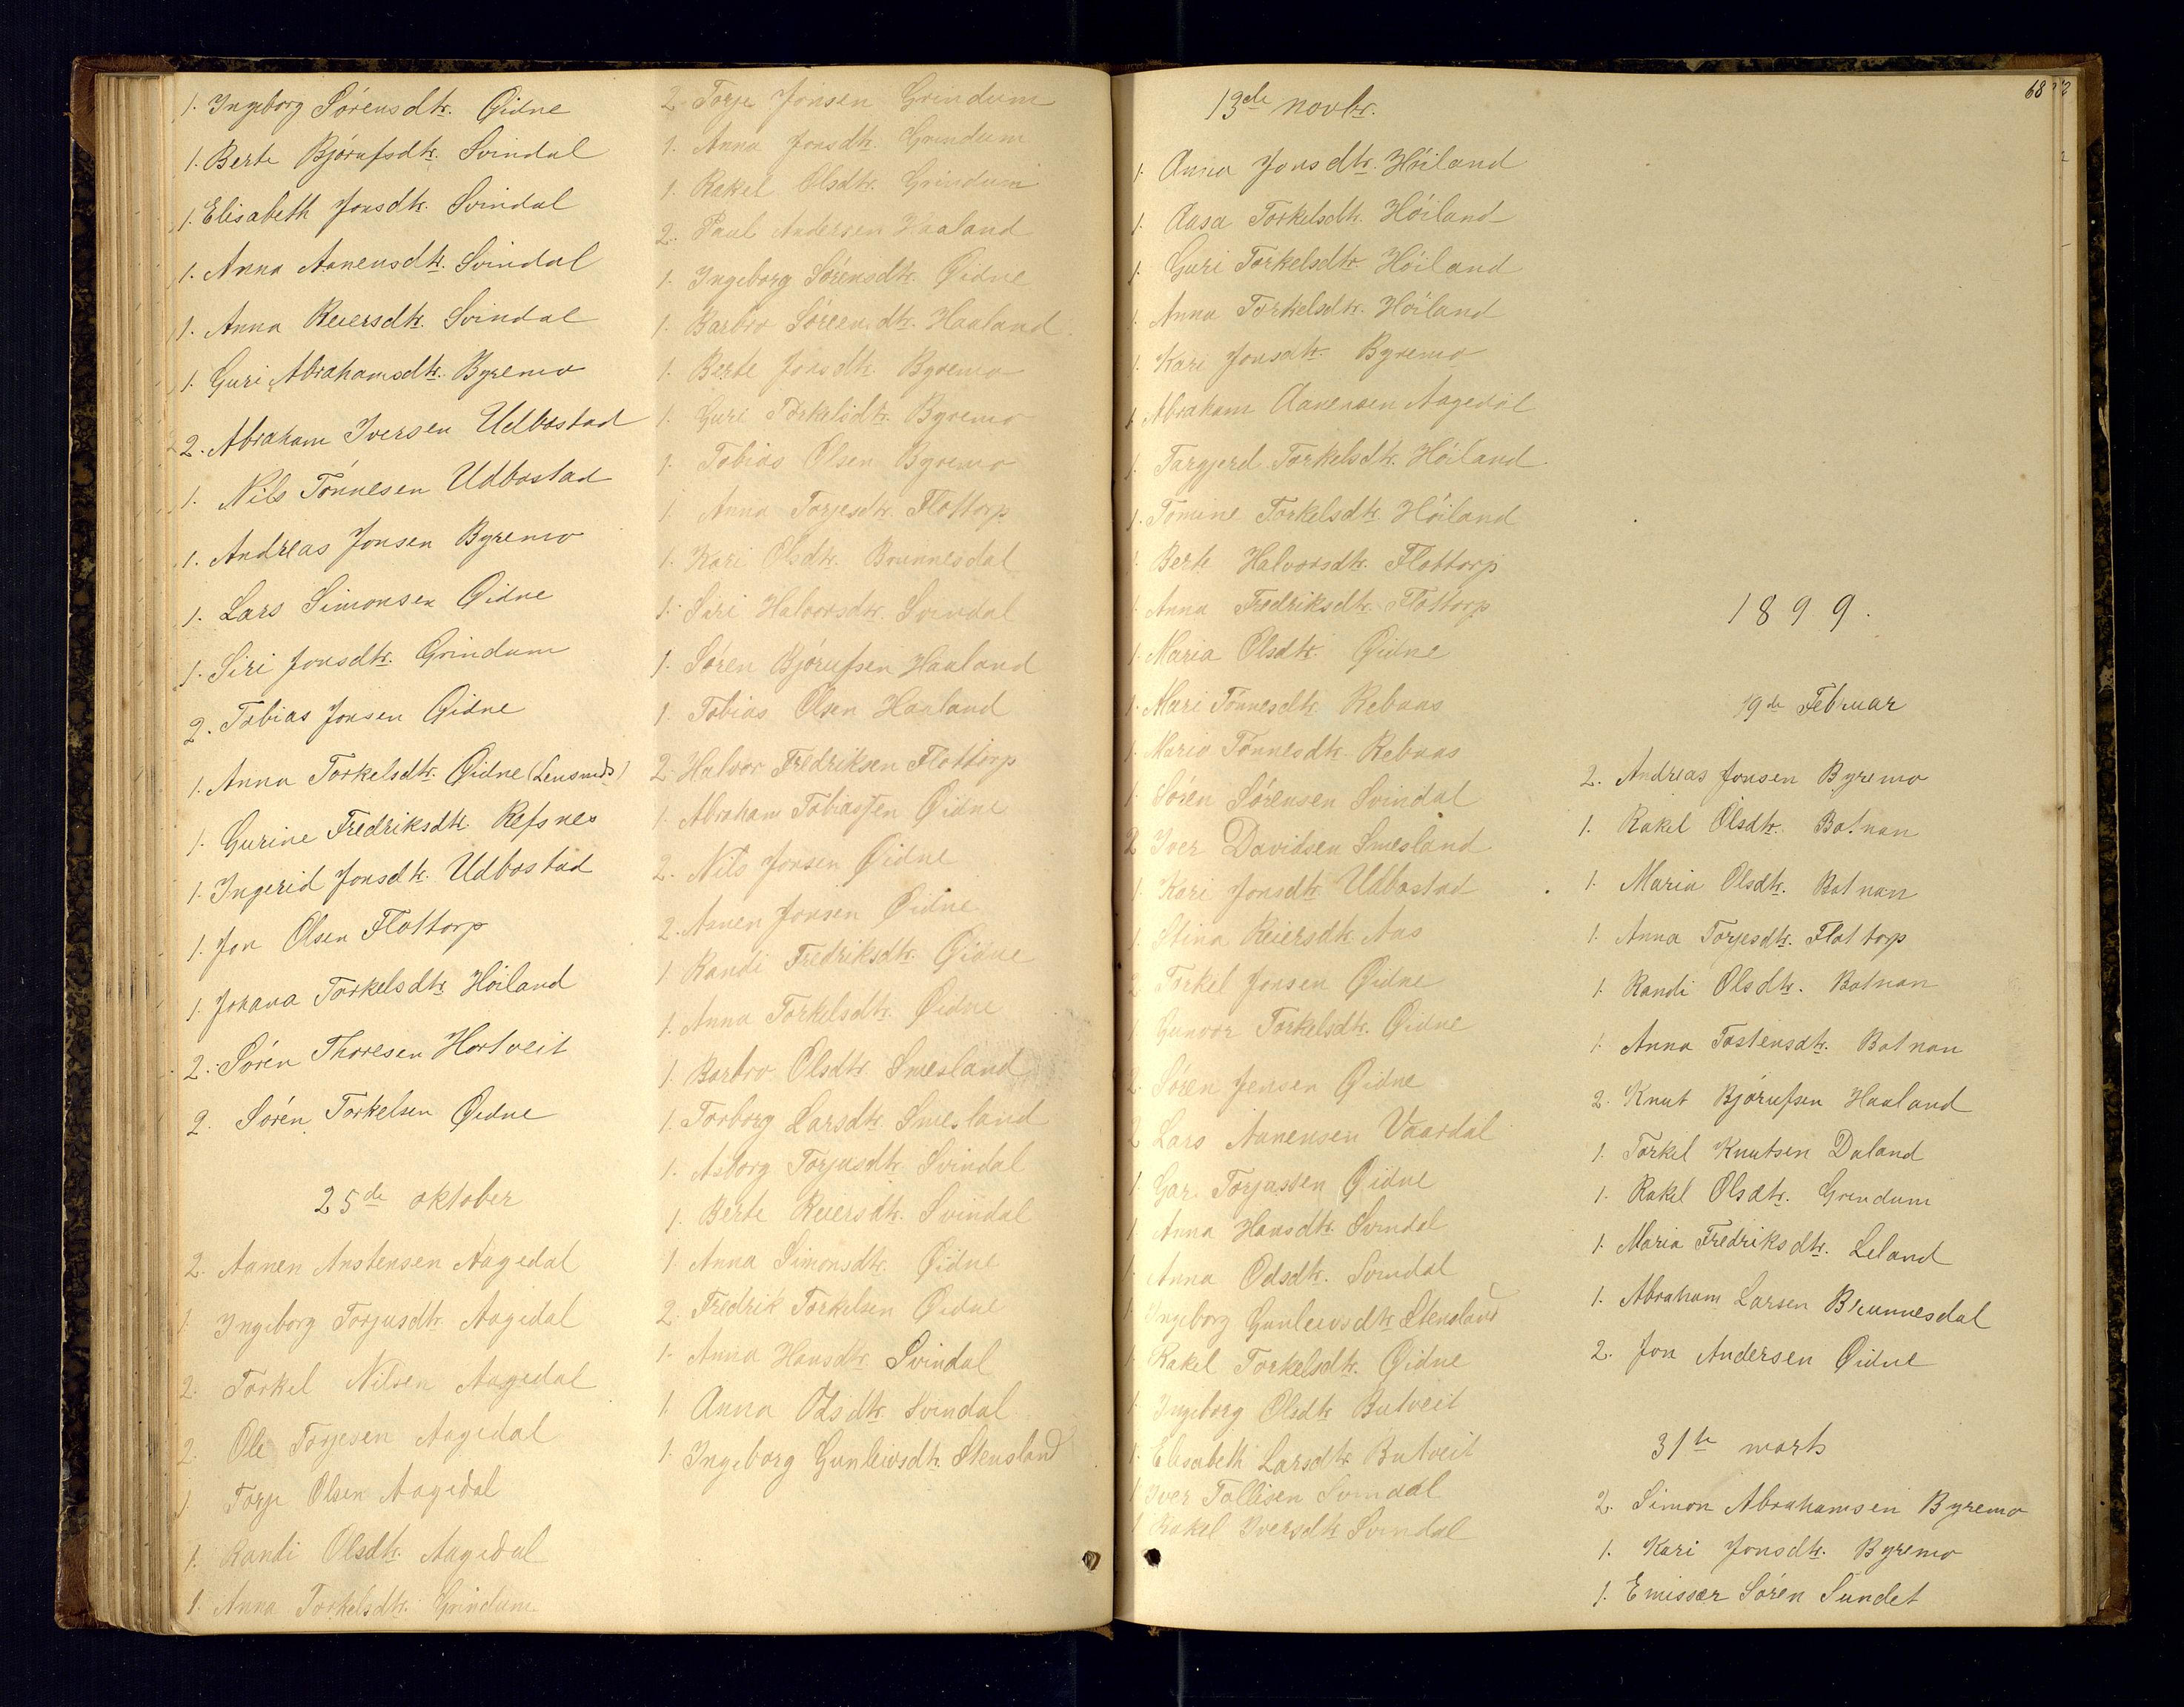 1. Ingeborg Sørensdtr. Øidne
1. Berte Bjørufsdtr. Svindal
1. Elisabeth Jonsdtr. Svindal
1. Anna Aanensdtr. Svindal
1. Anna Reiersdtr. Svindal
1. Guri Abrahamsdtr. Byremo
2. Abraham Iversen Udbostad
1. Nils Tønnesen Udbostad
1. Andreas Jonsen Byremo
1. Lars Simonsen Øidne
1. Siri Jonsdtr. Grindum
2. Tobias Jonsen Øidne
1. Anna Torkelsdtr. Øidne (Lensmds)
1. Gurine Fredriksdtr. Refsnes
1. Ingerid Jonsdtr. Udbostad
1. Jon Olsen Flottorp
1. Johana Torkelsdtr. Høiland
2. Søren Thoresen Hortveit
2. Søren Torkelsen Øidne
25de oktober
2. Aanen Anstensen Aagedal
1. Ingeborg Torjusdtr. Aagedal
2. Torkel Nilsen Aagedal
2. Ole Torjesen Aagedal
1. Torje Olsen Aagedal
1. Randi Olsdtr. Aagedal
1. Anna Torkelsdtr. Grindum
2. Torje Jonsen Grindum
1. Anna Jonsdtr. Grindum
1. Rakel Olsdtr. Grindum
2. Paul Andersen Haaland
1. Ingeborg Sørensdtr. Øidne
1. Barbro Søreensdtr. Haaland
1. Berte Jonsdtr. Byremo
1. Guri Torkelsdtr. Byremo
1. Tobias Olsen Byremo
1. Anna Torjesdtr. Flottorp
1. Kari Olsdtr. Brunnesdal
1. Siri Halvorsdtr. Svindal
1. Søren Bjørufsen Haaland
1. Tobias Olsen Haaland
2. Halvor Fredriksen Flottorp
1. Abraham Tobiassen Øidne
2. Nils Jonsen Øidne
2. Aanen Jonsen Øidne
1. Randi Fredriksdtr. Øidne
1. Anna Torkelsdtr. Øidne
1. Barbro Olsdtr. Smesland
1. Torborg Larsdtr. Smesland
1. Asborg Torjusdtr. Svindal
1. Berte Reiersdtr. Svindal
1. Anna Simonsdtr. Øidne
2. Fredrik Torkelsen Øidne
1. Anna Hansdtr. Svindal
1. Anna Odsdtr. Svindal
1. Ingeborg Gunleivsdtr. Stensland
68
13de novbr.
1. Anna Jonsdtr. Høiland
1. Aasa Torkelsdtr. Høiland
1. Guri Torkelsdtr. Høiland
1. Anna Torkelsdtr. Høiland
1. Kari Jonsdtr. Byremo
1. Abraham Aanensen Aagedal
1. Targjerd Torkelsdtr. Høiland
1. Tomine Torkelsdtr. Høiland
1. Berte Halvorsdtr. Flottorp
1. Anna Fredriksdtr. Flottorp
1. Maria Olsdtr. Øidne
1. Mari Tønnesdtr. Rebaas
1. Maria Tønnesdtr. Rebaas
1. Søren Sørensen Svindal
2 Iver Davidsen Smesland
1. Kari Jonsdtr. Udbostad
1. Stina Reiersdtr. Aas
2 Torkel Jonsen Øidne
1 Gunvor Torkelsdtr. Øidne
2. Søren Jensen Øidne
2 Lars Aanensen Vaardal
1. Torjussen Øidne
1 Anna Hansdtr. Svindal
1 Anna Odsdtr. Svindal
1 Ingeborg Gunleivsdtr. Stensland
1 Rakel Torkelsdtr. Øidne
1 Ingeborg Olsdtr. Butveit
1. Elisabeth Larsdtr. Butveit
1 Iver Tallisen Svindal
1 Rakel Iversdtr. Svindal
1899.
19de Februar
2. Andreas Jonsen Byremo
1. Rakel Olsdtr. Botnan
1. Maria Olsdtr. Botnan
1. Anna Torjesdtr. Flottorp
1. Randi Olsdtr. Botnan
1. Anna Tostensdtr. Botnan
2. Knut Bjørufsen Haaland
1. Torkel Knutsen Daland
1. Rakel Olsdtr. Grindum
1. Maria Fredriksdtr. Leland
1. Abraham Larsen Brunnesdal
2. Jon Andersen Øidne
31te marts
2. Simon Abrahamsen Byremo
1. Kari Jonsdtr. Byremo
1. Emissær Søren Sundet